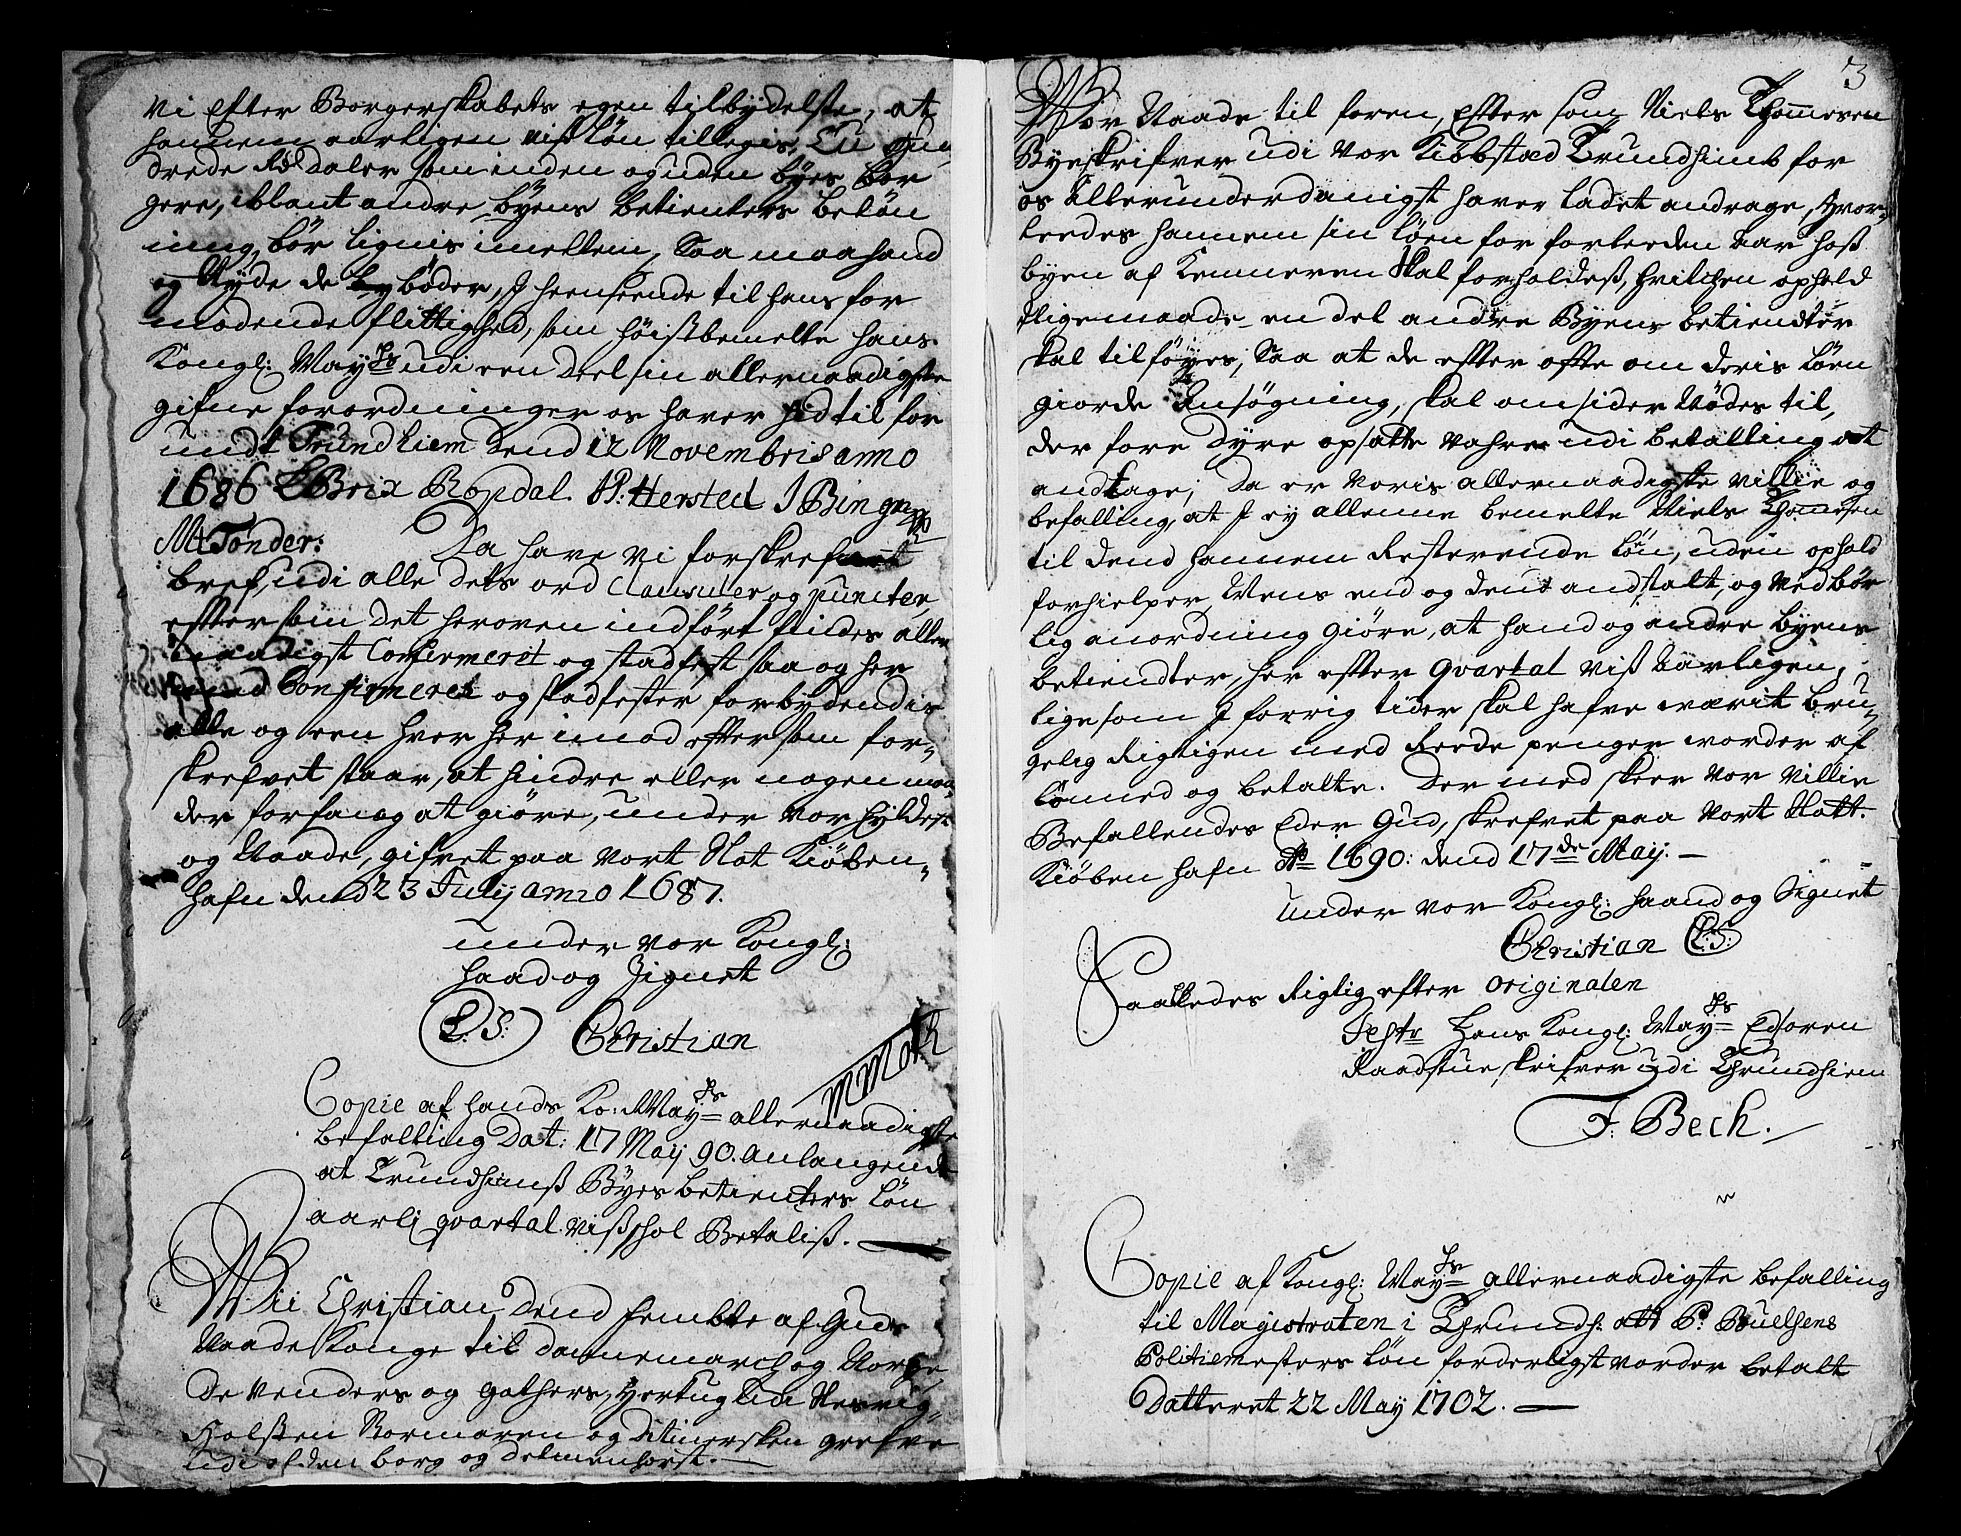 vi efter Borgerskabets egen tilbydelse, at
hannem aarligen viß løn tillegis, En Hun
drede Rdr Daler som inden og uden byes bor
gere, iblant andre byens betienters beløn
ning, bør lignis imellem, Saa maa hand
og Nyde de bybøder, I henseende til hans for
modende flittighed, som høistbemelte hans
Kongl: Mayts udi een Deel sin allernaadigste
gifne forordninger os haver hid til for
undt Trundhiem Dend 12 Novembris anno
1686 Brix Ropdal P: Hersted J Bing
M Tønder: Da have vi forskrefne
bref, udi alle dets ord Clausuler og puncter,
efftersom det heroven indført findes aller
naadigst Confirmeret og stadfest saa og her
med Confirmerer og stadfester forbydendis
alle og een hver her imod eftersom for-
skrefvet staar, at hindre eller nogen maa-
der forfang at giøre, under vor hyldest
og Naade, gifvet paa vort Slot Kiøben-
hafn dend 23 Julij anno 1687.
under vor Kongl:
haand og Signet
L.S: Christian
M Moth
Copie af hands Ko: Mayts allernaadigste
befalling Dat: 17 Maij 90. anlangende
at Trundhimß Byes betienters løn
aarli qvartal vißshol Betaliß.
Wii Christian Dend femtte af Guds
Naade Konge til Dannemarch og Norge,
De Venders og Gothers, Hertug udi Slesvig,
Holsten Stormaren og Ditmersken grefve
udi olden borg og Delmenhorst.
3
Vor Naade til foren, Efter som Niels Thomesen
Byeskrifver udi vor Kiøbstæd Trundhimb for
os Allerunderdanigst haver ladet andrage, hvor-
ledes hannem sin løen for forleeden aar hoß
byen af Kemneren skal forholdeß, hvilchen ophold
ligemaade en del andre Byens betiendter
skal tilføyes, Saa at de effter offte om deris løen
giorde Ansøgning, skal omsider Nødes til,
der fore dyre opsatte vahre udi betalling at
andtage; Da er voris allernaadigste villie og
befalling, at I ey allenne bemelte Niels Thomesen
til dend hannem Resterende løn, uden ophold
forhielper, Mens end og dend anstalt, og vedbør
lig anordning giøre, at hand og andre byens
betiendter, her effter qvartal viß aarligen,
ligesom I forrig tider skal hafve værit bru-
gelig Rigtigen med Reede penger vorder af
lønned og betalte. Der med skeer vor villie
Befallendes Eder Gud, skrefvet paa vort Slott.
Kiøben hafn Ao 1690: dend 17de Maij.
under vor Kongl: haand og Signet
Christian L:S:
Saaledes Rigtig efter originalen
Testr Hans Kongl: Mayts Edsoren
Raadstue skrifver udi Thrundhiem
F. Bech.
Copie af Kongl: Mayts allernaadigste befalling
til Magistraten i Thrundh: att P: Puelsens
Politiemesters løn forderligst vorder betalt
Datteret 22 May 1702.